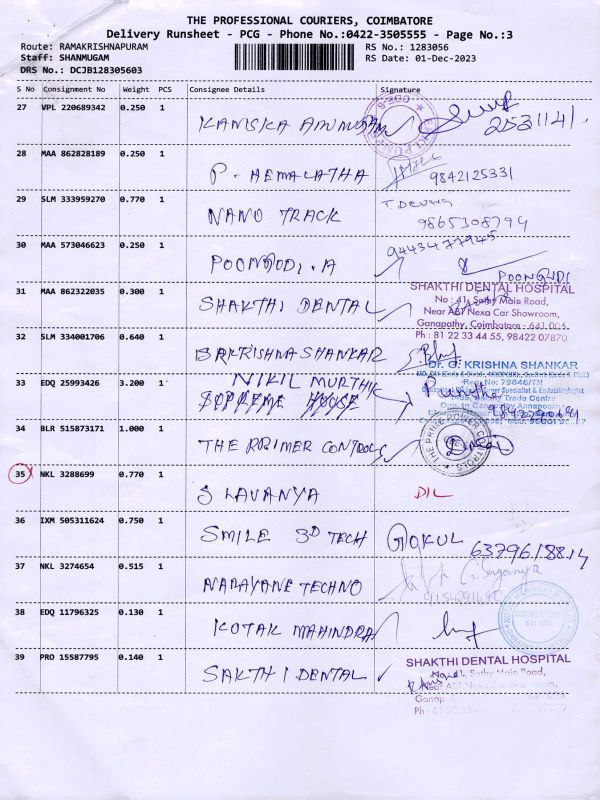 THE PROFESSIONAL COURIERS, COIMBATORE
Delivery Runsheet - PCG - Phone No.:0422-3505555 - Page No.:3
Route: RAMAKRISHNAPURAM
Staff: SHANMUGAM
DRS No.: DCJB128305603
RS No.: 1283056
RS Date: 01-Dec-2023
S No Consignment No Weight PCS Consignee Details Signature
27 VPL 220689342 0.250 1
KANISKA 2531141
28 MAA 862828189 0.250 1
P. HEMALATHA 9842125331
29 SLM 333959270 0.770 1
NANO TRACK T. Devaraj
9865308794
30 MAA 573046623 0.250 1
9443477945
POONGODI. A POONGODI
31 MAA 862322035 0.300 1
SHAKTHI DENTAL
SHAKTHI DENTAL HOSPITAL
No : 41, Sathy Main Road,
Near ABT Nexa Car Showroom,
Ganapathy, Coimbatore - 641 006.
Ph : 81 22 33 44 55, 98422 07870
32 SLM 334001706 0.640 1
DR KRISHNA SHANKAR
Dr. G. KRISHNA SHANKAR
Reg.No: 79646/TN
33 EDQ 25993426 3.200 1
NIKIL MURTHIK
SUPREME HOUSE
34 BLR 515873171 1.000 1
THE PRIMER CONTROLS
THE PRIME POWER CONTROLS
35 NKL 3288699 0.770 1
S LAVANYA DIL
36 IXM 505311624 0.750 1
SMILE 3D TECH GOKUL 6379618814
37 NKL 3274654 0.515 1
NARAYANE TECHNO
38 EDQ 11796325 0.130 1
KOTAK MAHINDRA
39 PRO 15587795 0.140 1
SAKTHI DENTAL
SHAKTHI DENTAL HOSPITAL
Sathy Main Road,